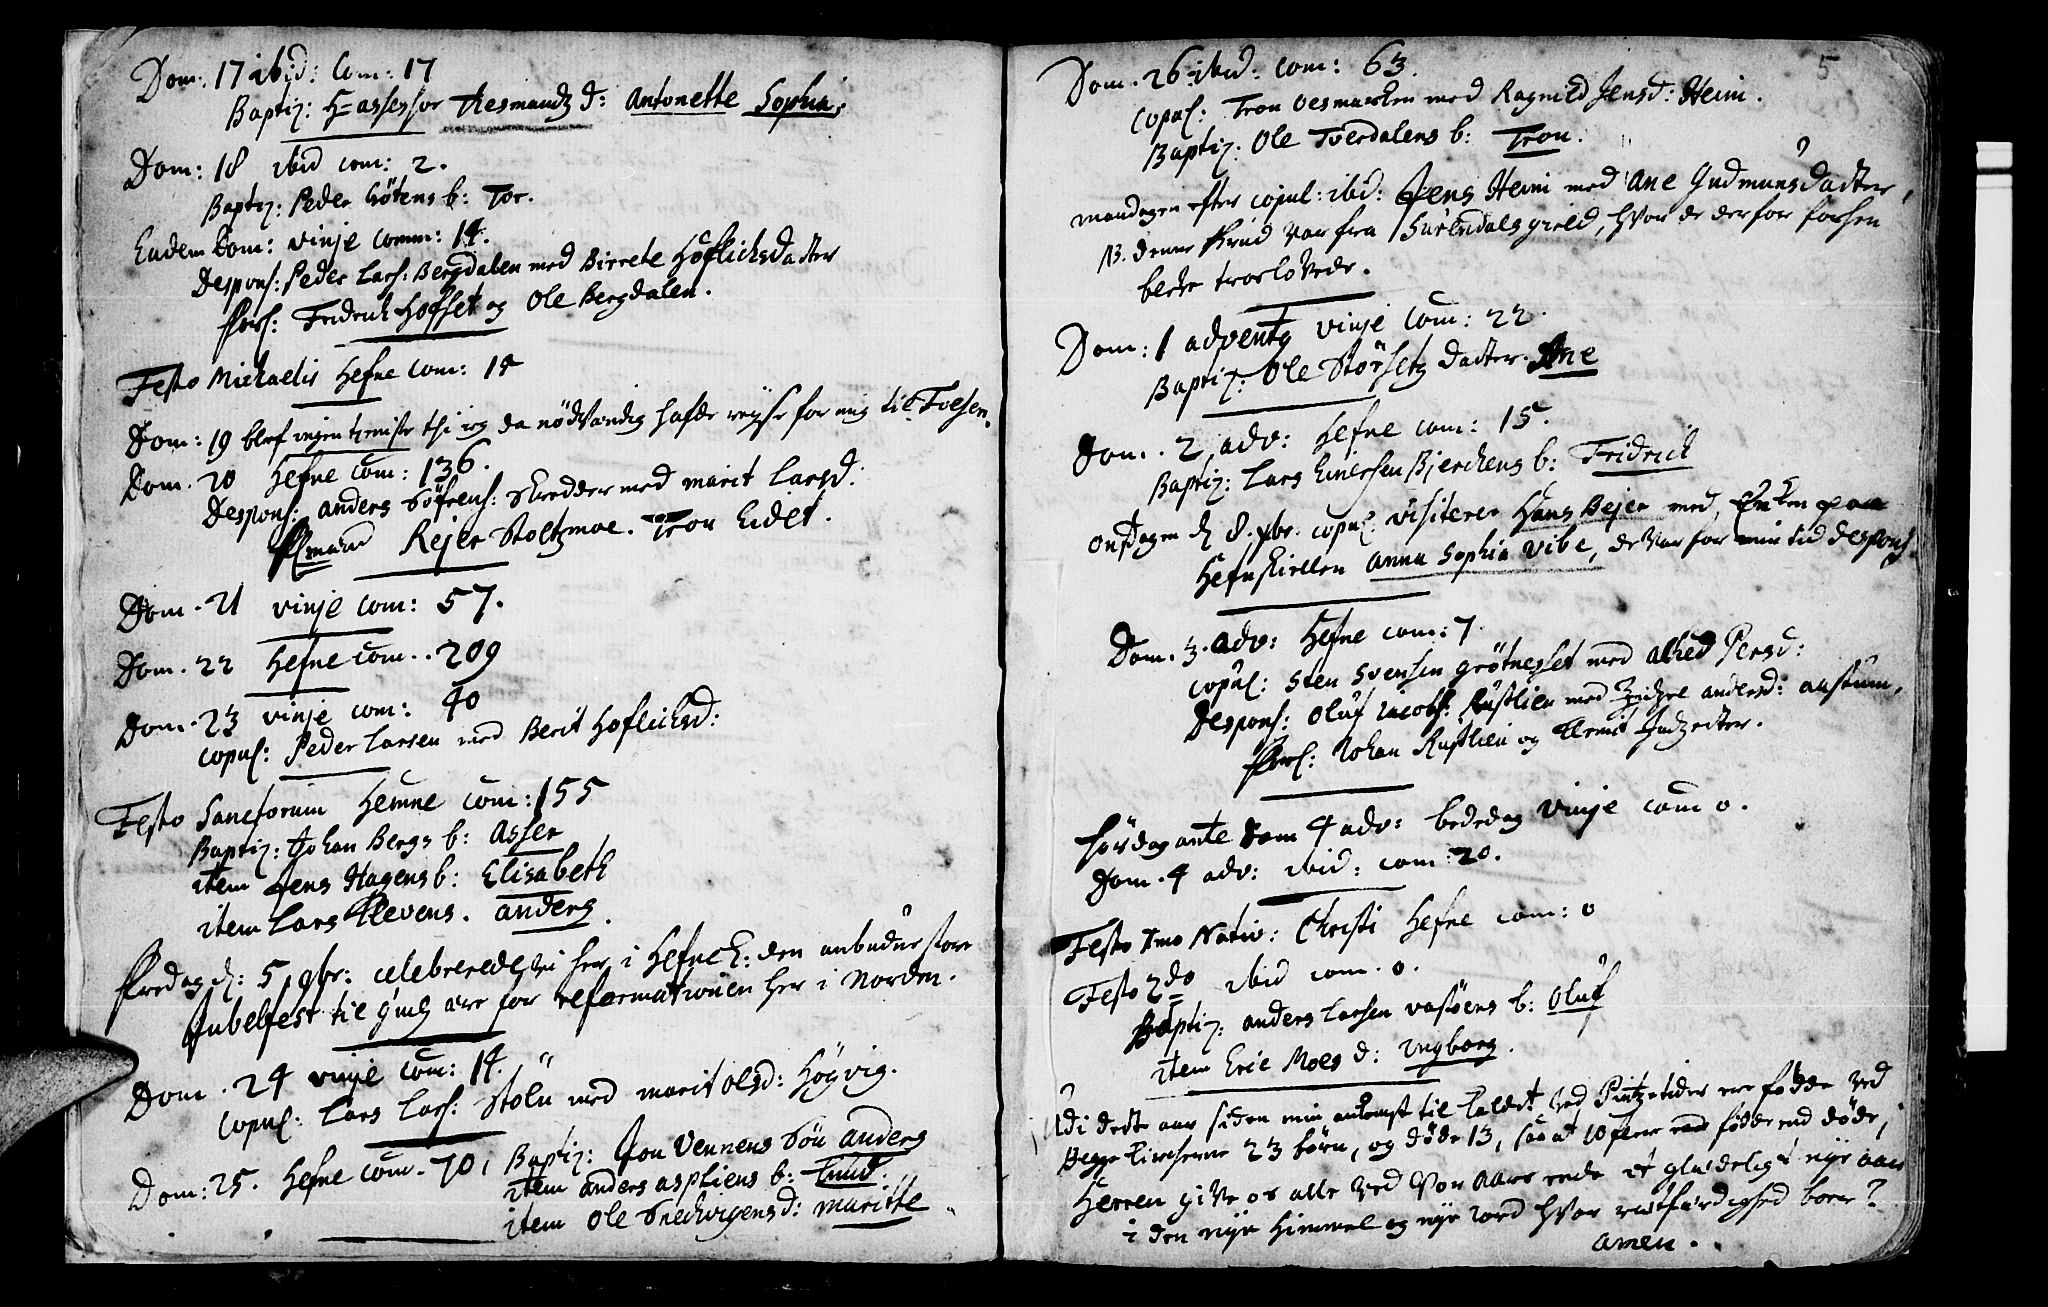 Dom: 17 ibid: Com: 17
Baptiz: H= assessor Thesmandz d: Antonette Sophia.
Dom: 18 ibid com: 2.
Baptiz: Peder Götens b: Tor.
Eadem Dom: Vinje comm: 14.
Despons: Peder Lars: Bergdalen med Birrete Höflichsdatter
Friderich Hofset og Ole Bergdalen.
Festo Michaelis Hefne Com: 14
Dom: 19 blef ingen tieniste thi jeg da nödvändig hafde reyse for mig til Fosen.
Dom. 20 Hefne Com: 136.
Despons: anders Söfrens: Skredder med marit Larsd:
Rejer Stoltzmoe. Tron Eidet.
Dom. 21 Vinje Com: 57.
Dom. 22 Hefne Com. 209
Dom. 23 Vinje Com: 40
Copul: Peder Larsen med Berit Hoflichsd:
Festo Sanctorum Hemne Com: 155
Baptiz: Johan Bergs b: Asser
item Jens Hagens b: Elisabeth
item Lars Klevens. anders.
Fredag d: 5. 9br: celebrerede vi her i Hefne K: den anbudne store
Jubelfest til Gudz ære for reformationen her i Norden.
Dom. 24 Vinje Com: 14.
Copul: Lars Lars: Stöln med marit Olsd: Högvig.
Dom: 25. Hefne Com. 70, Baptiz: Jon Vennens Sön anders
item anders aspliens b: Knud.
item Ole Snedvigens d: maritte
5
Dom. 26 ibid: com: 63.
Copul: Tron Oesmarken med Ragnild Jensd: Heim.
Baptiz: Ole Tverdalens b: Tron.
mandagen efter copul: ibid: Jens Heim med Ane Gudmunsdatter,
NB. denne Brud var fra Surendals gield, hvor de derfor forhen
bleve troslovede.
Dom: 1 adventz Vinje Com: 22.
Baptiz: Ole Störsetz datter. Ane
Dom. 2 adv: Hefne Com: 15.
Baptiz: Lars Einersen Bjerckens b: Fridrich
Onsdagen d 8. xbr. copul. visiteur Hans Bejer med Enken paa
Hefnskiellen Anna Sophia Vibe, de var for min tid despons.
Dom. 3. adv: Hefne com: 7
Copul: Sten Svensen grötnesset med Persd:
Despons: Oluf Jacobs: Rustlien med andersd:
Johan Rustlien og
Lördag ante Dom 4 adv: bededag Vinje com 0.
Dom. 4 adv: ibid: com: 20.
Festo Imo Nativ: Christi Hefne com: 0
Festo 2do ibid com. 0.
Baptiz: anders Larsen vasöens b: Oluf
item Eric Moes d: Ingborg.
Udi dette aar siden min ankomst til kaldet ved Pintzetider ere födde ved
Begge Kircherne 23 börn, og döde 13, saa at 10 flere födde end döde,
Herren give os alle ved vor aars ende et glædelig nyt aar
i den nye Himmel og nye iord hvor retfærdighed boer?
amen.